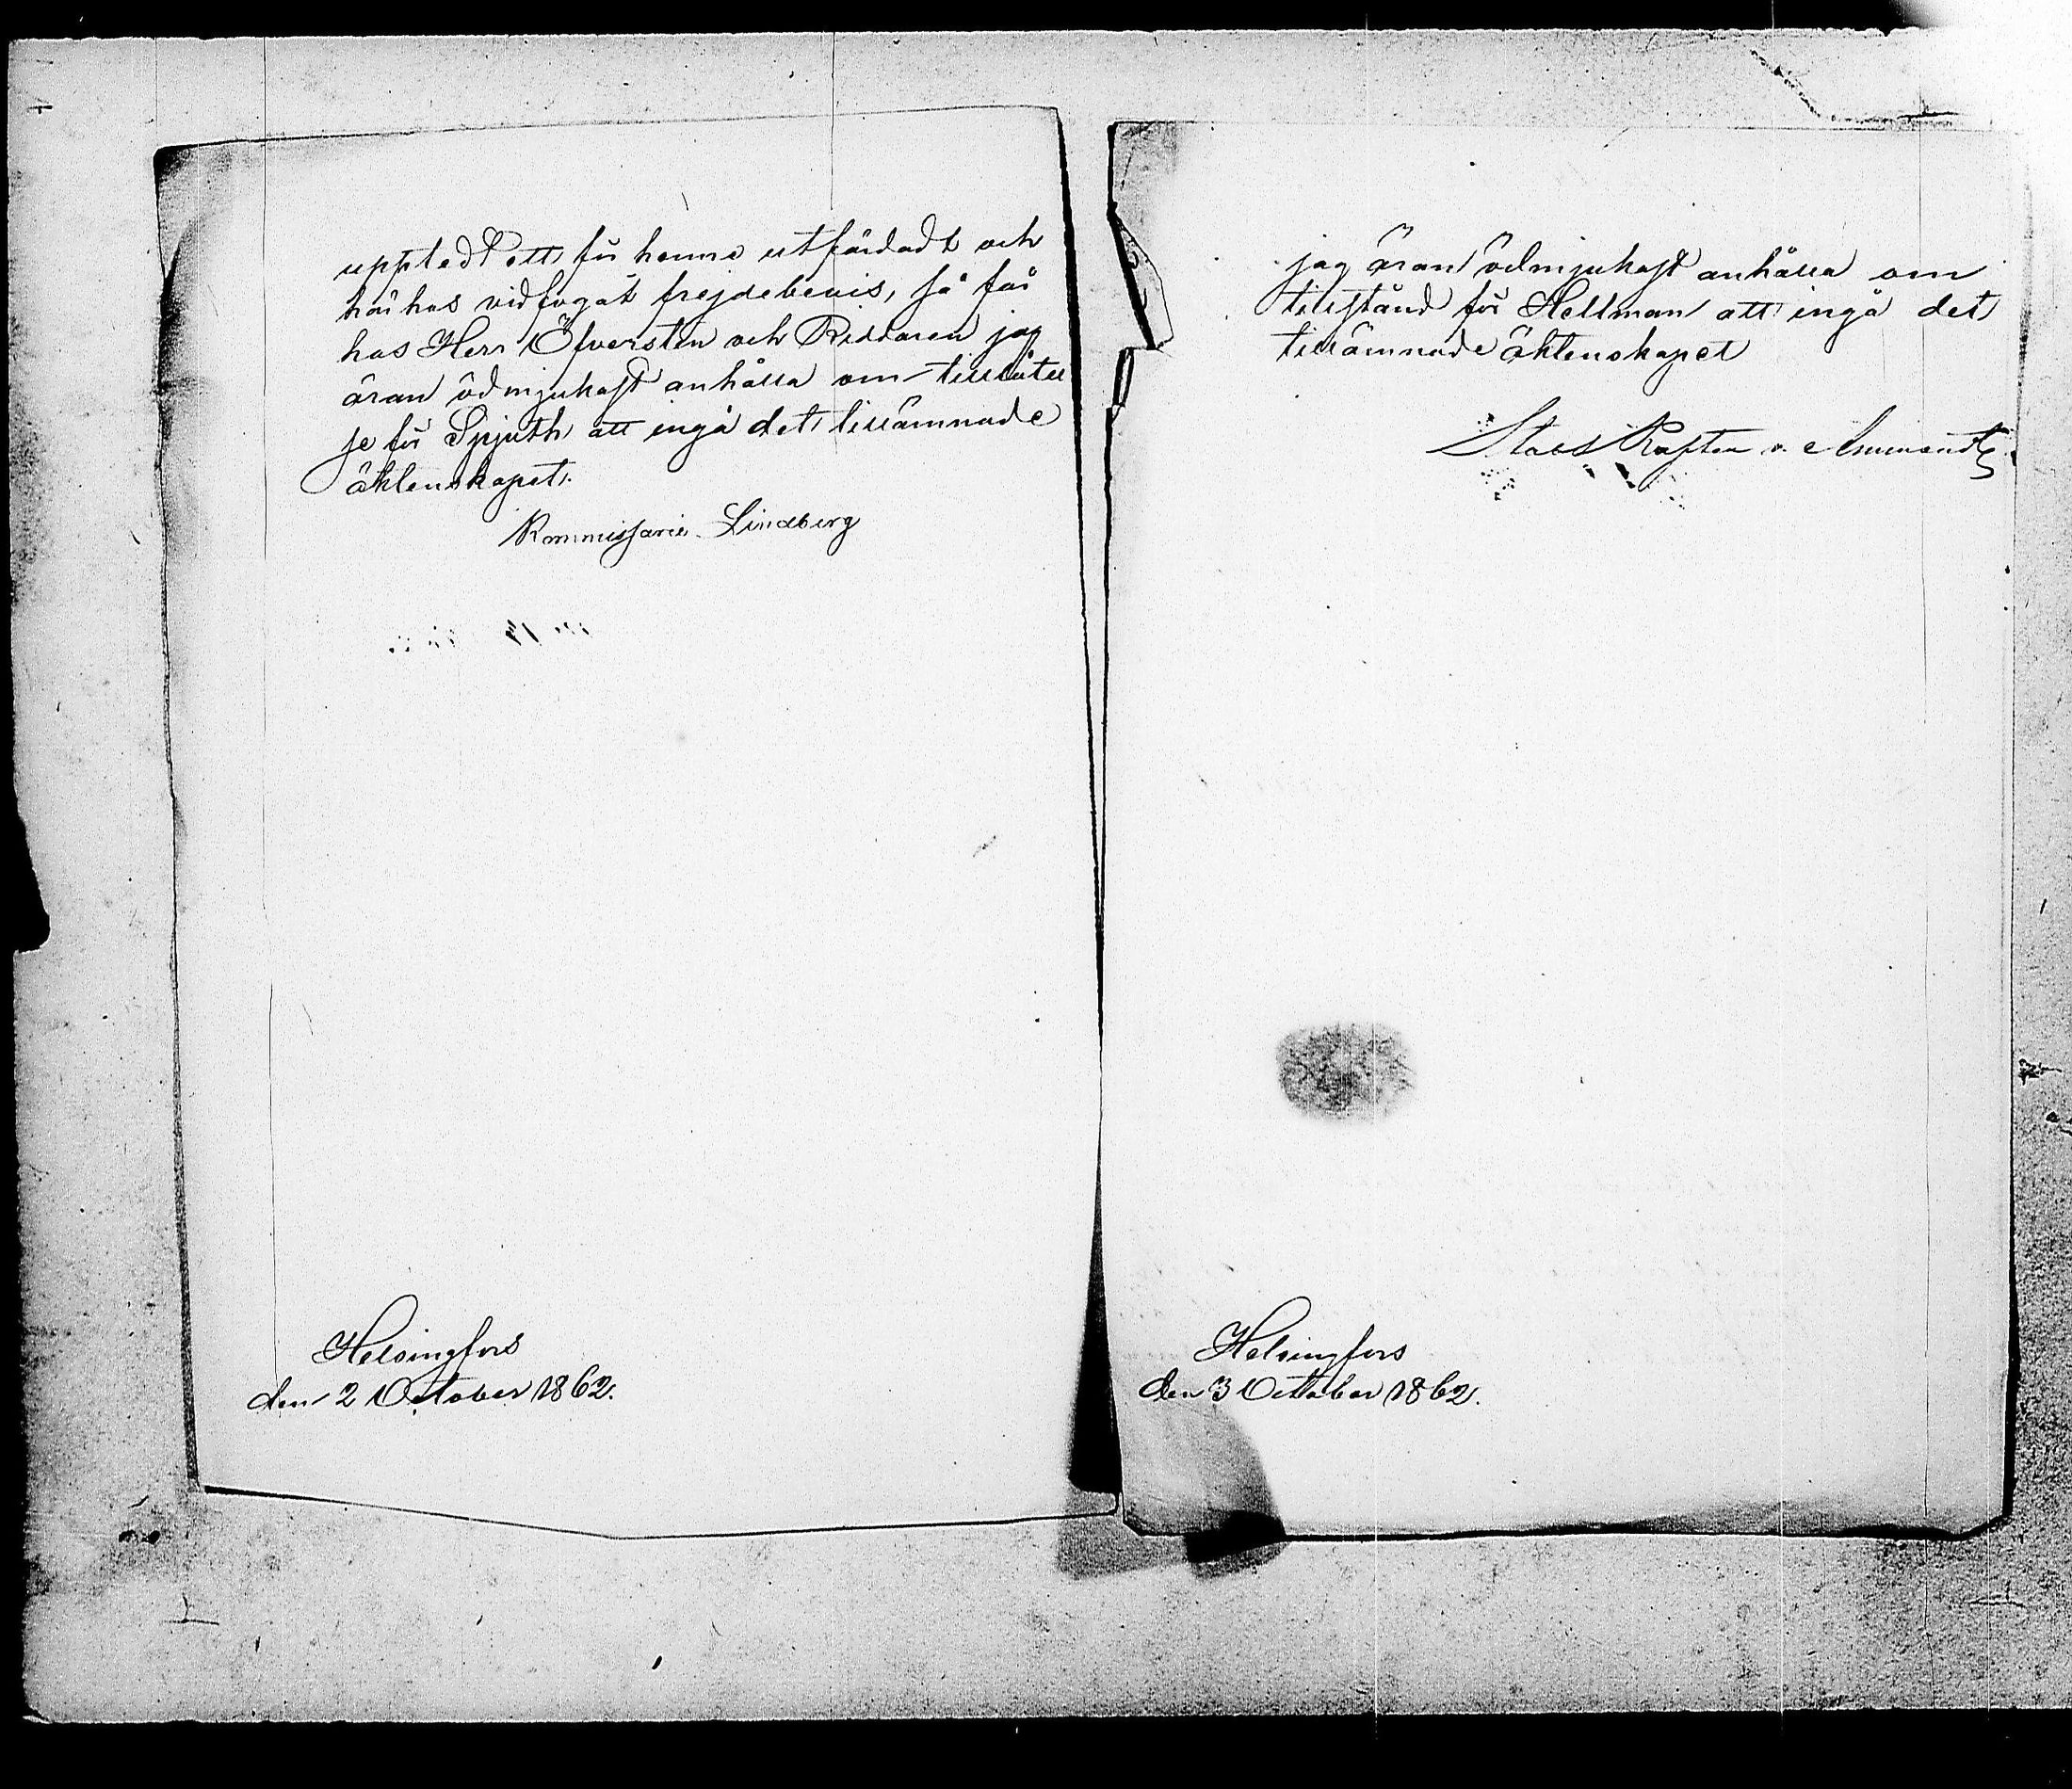 uppteedt ett för henne utfärdadt och
härhos vidfogat frejdebevis, så får
hos Herr Öfversten och Riddaren jag
äran ödmjukast anhålla om tillåtel
se för Spjuth att ingå det tillämnade
äktenskapet.
Kommissarie Lindberg
Helsingfors
den 2 October 1862.
jag äran ödmjukast anhålla om
tillstånd för Hellman att ingå det
tillämnade äktenskapet
Stabs Kapten v. Ammondt
Helsingfors
den 3 October 1862.